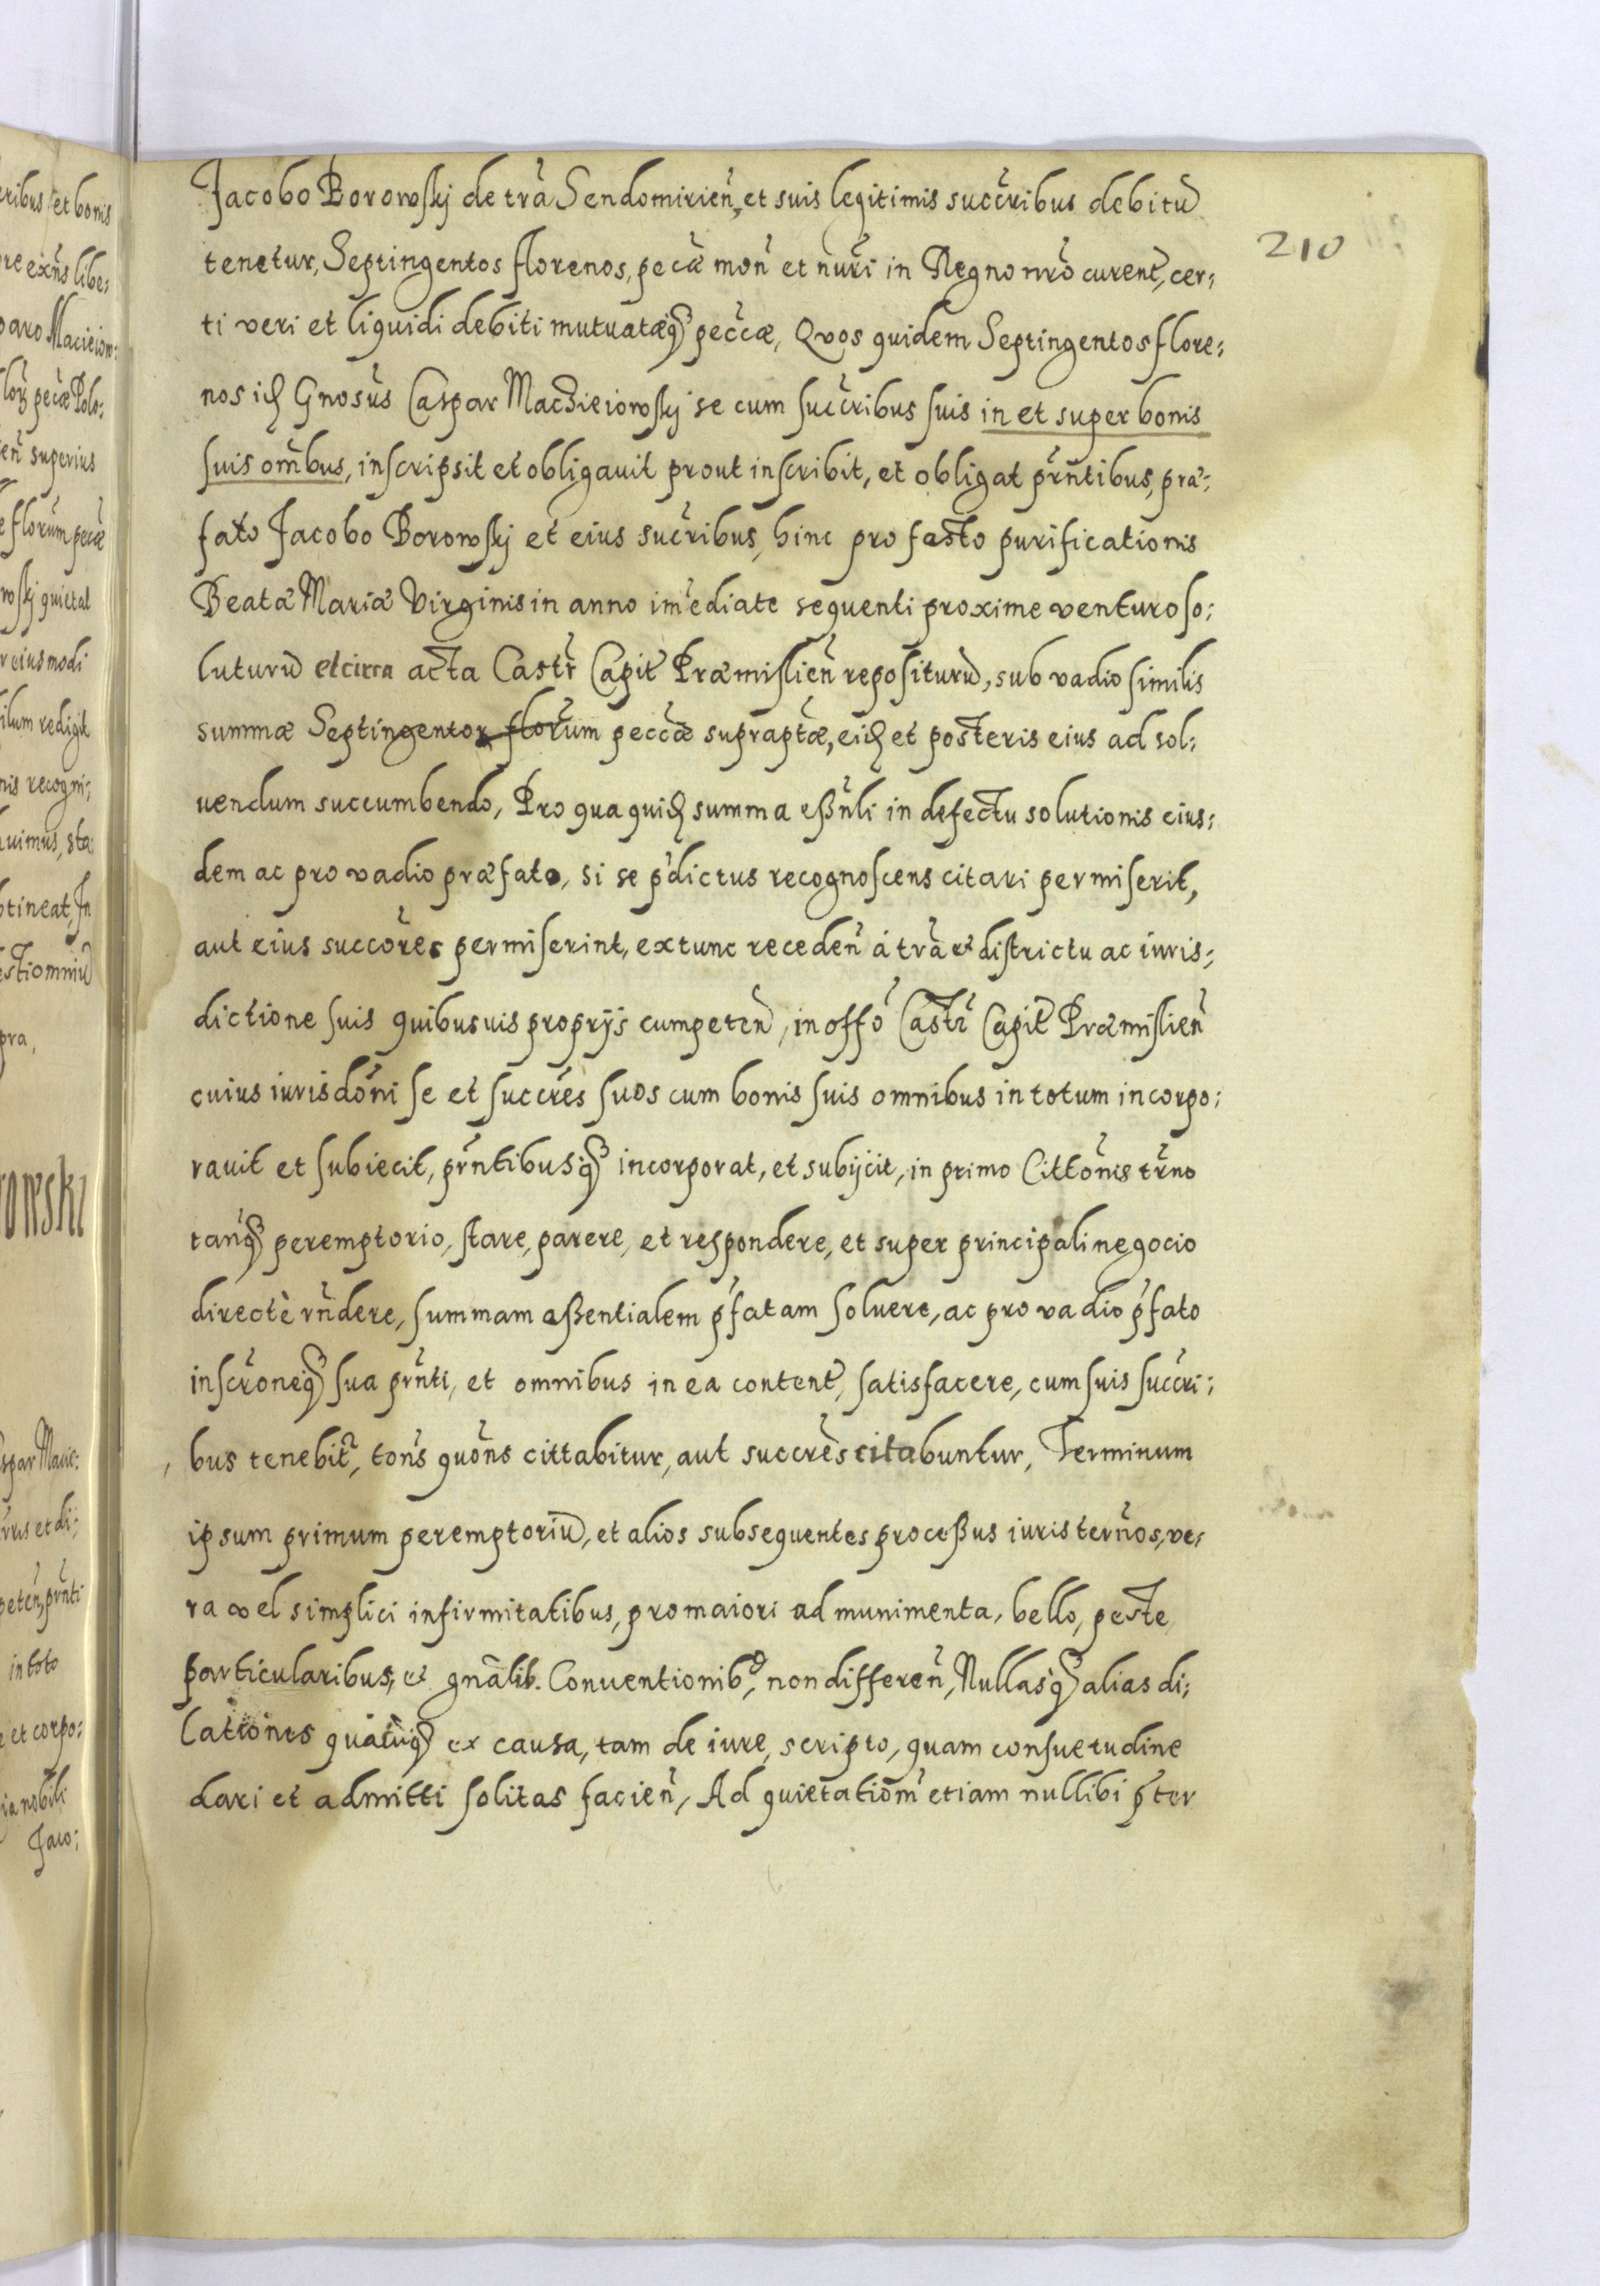 210
Jacobo Borowskj de tra Sendomirien, et suis legitimis succribus debitu
tenetur, Septingentos florenos, pecae mon et nuri in Regno nro curent, cer:
ti veri et liquidi debiti mutuataeq peccae, Quos quidem Septingentos flore:
nos id Gnosus Caspar Machieiowskj se cum succribus suis in et super bonis
suis ombus, inscripsit et obligauit prout inscribit, et obligat prntibus, prae:
fato Jacobo Borowskj et eius sucribus, hinc pro festo purificationis
Beatae Mariae Virginis in anno imediate sequenti proxime venturo so:
luturu et circa acta Castr Capit Praemislien repositurũ, sub vadio similis
summae Septingentor florum peccae supraptae, eid et posteris eius ad sol:
uendum succumbendo, Pro qua quid summa eßnli in defectu solutionis eius:
dem ac pro vadio praefato, si se pdictus recognoscens citari permiserit,
aut eius succores permiserint, extunc receden á tra et districtu ac iuris:
dictione suis quibusuis proprijs cumpeten, in offo Castr Capit Praemislien
cuius iurisdoni se et succres suos cum bonis suis omnibus in totum incorpo:
rauit et subiecit, prntibusq incorporat, et subijcit, in primo Cittonis trno
tanq peremptorio, stare, parere, et respondere, et super principali negocio
directè rndere, summam eßentialem pfatam soluere, ac pro vadio pfato
inscroneq sua prnti, et omnibus in ea content, satisfacere, cum suis succri:
bus tenebitr, tons quons cittabitur, aut succres citabuntur, Terminum
ipsum primum peremptoriũ, et alios subsequentes proceßus iuris ternos, ve:
ra vel simplici infirmitatibus, pro maiori ad munimenta, bello, peste
particularibus, et gnalib. Conuentionib, non differen, Nullasq alias di:
lationes quauisq ex causa, tam de iure, scripto, quam consuetudine
dari et admitti solitas facien, Ad quietationem etiam nullibi pter